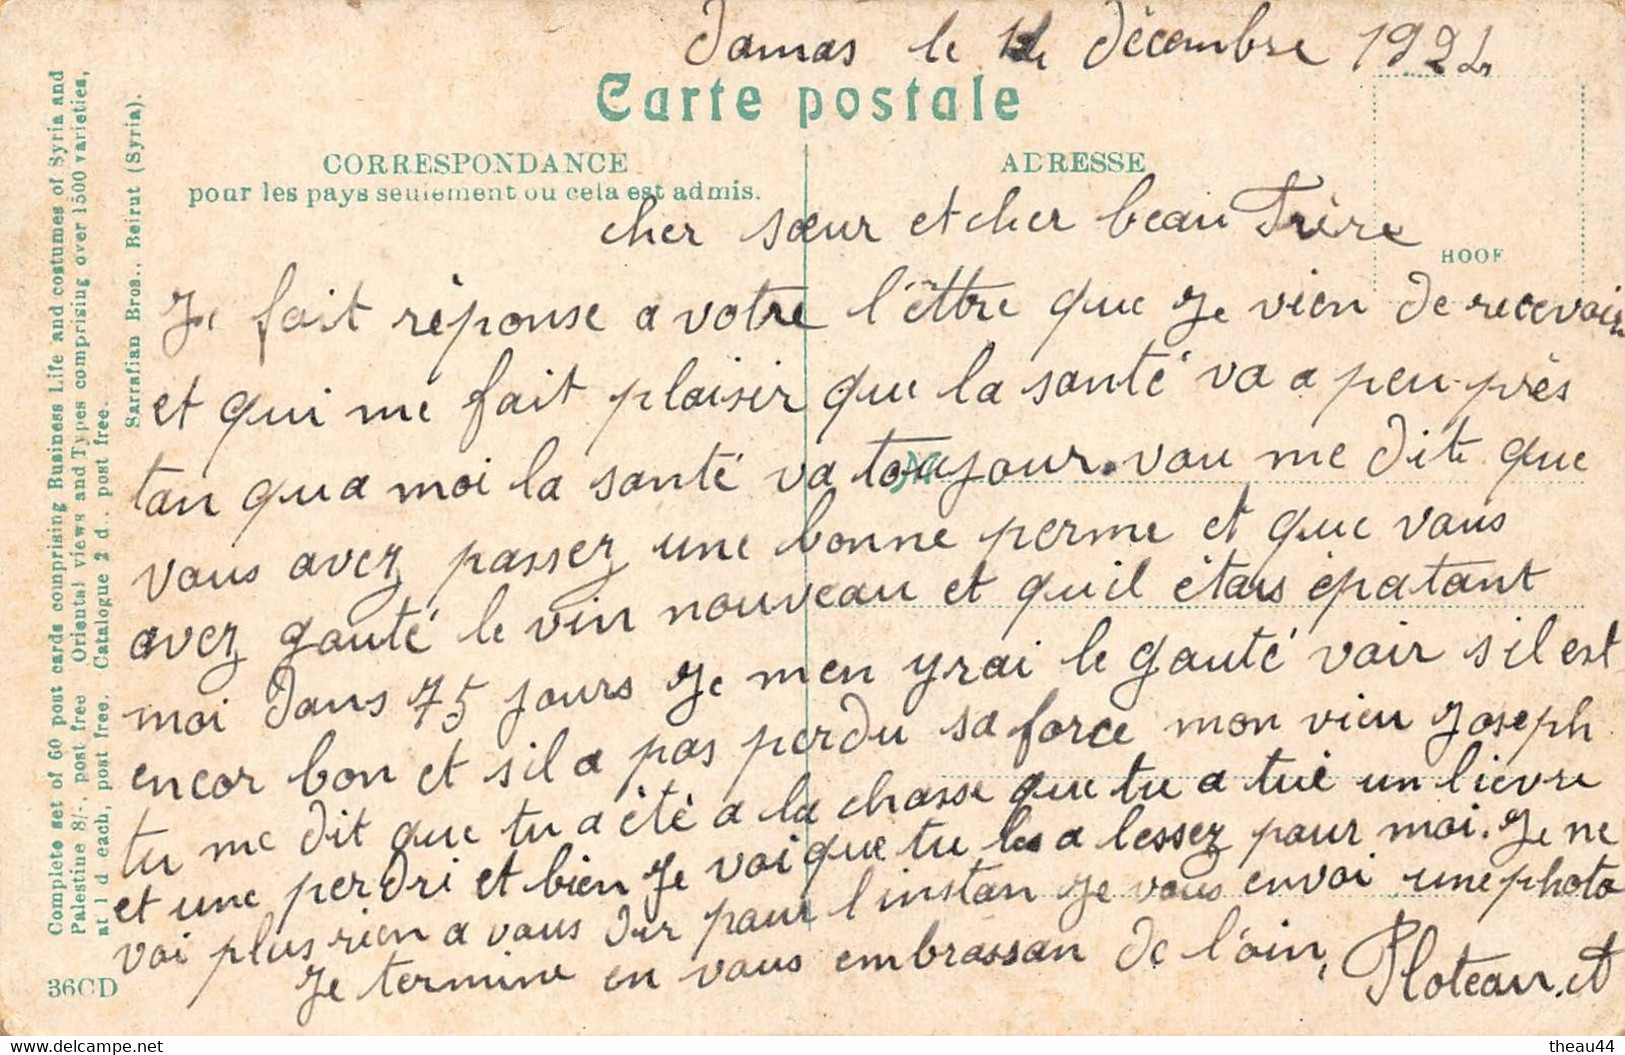 Damas le décembre 192
Carte postale
CORRESPONDANCE
pour les pays seulement ou cela est admis.
ADRESSE
HOOF
cher sœur et cher beau Frère
Je fait réponse a votre l'êttre que Je vien de recevoir
et qui me fait plaisir que la santé va a peu près
tan qua moi la santé va toujour. vou me dite que
vous avez passez une bonne perme et que vous
avez gouté le vin nouveau et qu'il étais épatant
moi dans 75 jours Je m'en yrai le gouté voir s'il est
encor bon et s'il a pas perdu sa force mon vieu Joseph
tu me dit que tu a été a la chasse que tu a tué un lievre
et une perdri et bien Je voi que tu les a lessez pour moi. Je ne
voi plus rien a vous dir pour l'instan Je vous envoi une photo
Je termine en vous embrassan de l'oin, Ploteau. A
Complete set of 60 post cards comprising Business Life and costumes of Syria and
Palestine 8/-, post free Oriental views and Types comprising over 1500 varieties,
at 1 d each, post free. Catalogue 2 d. post free.
Sarrafian Bros., Beirut (Syria).
36CD
www.delcampe.net
theau44